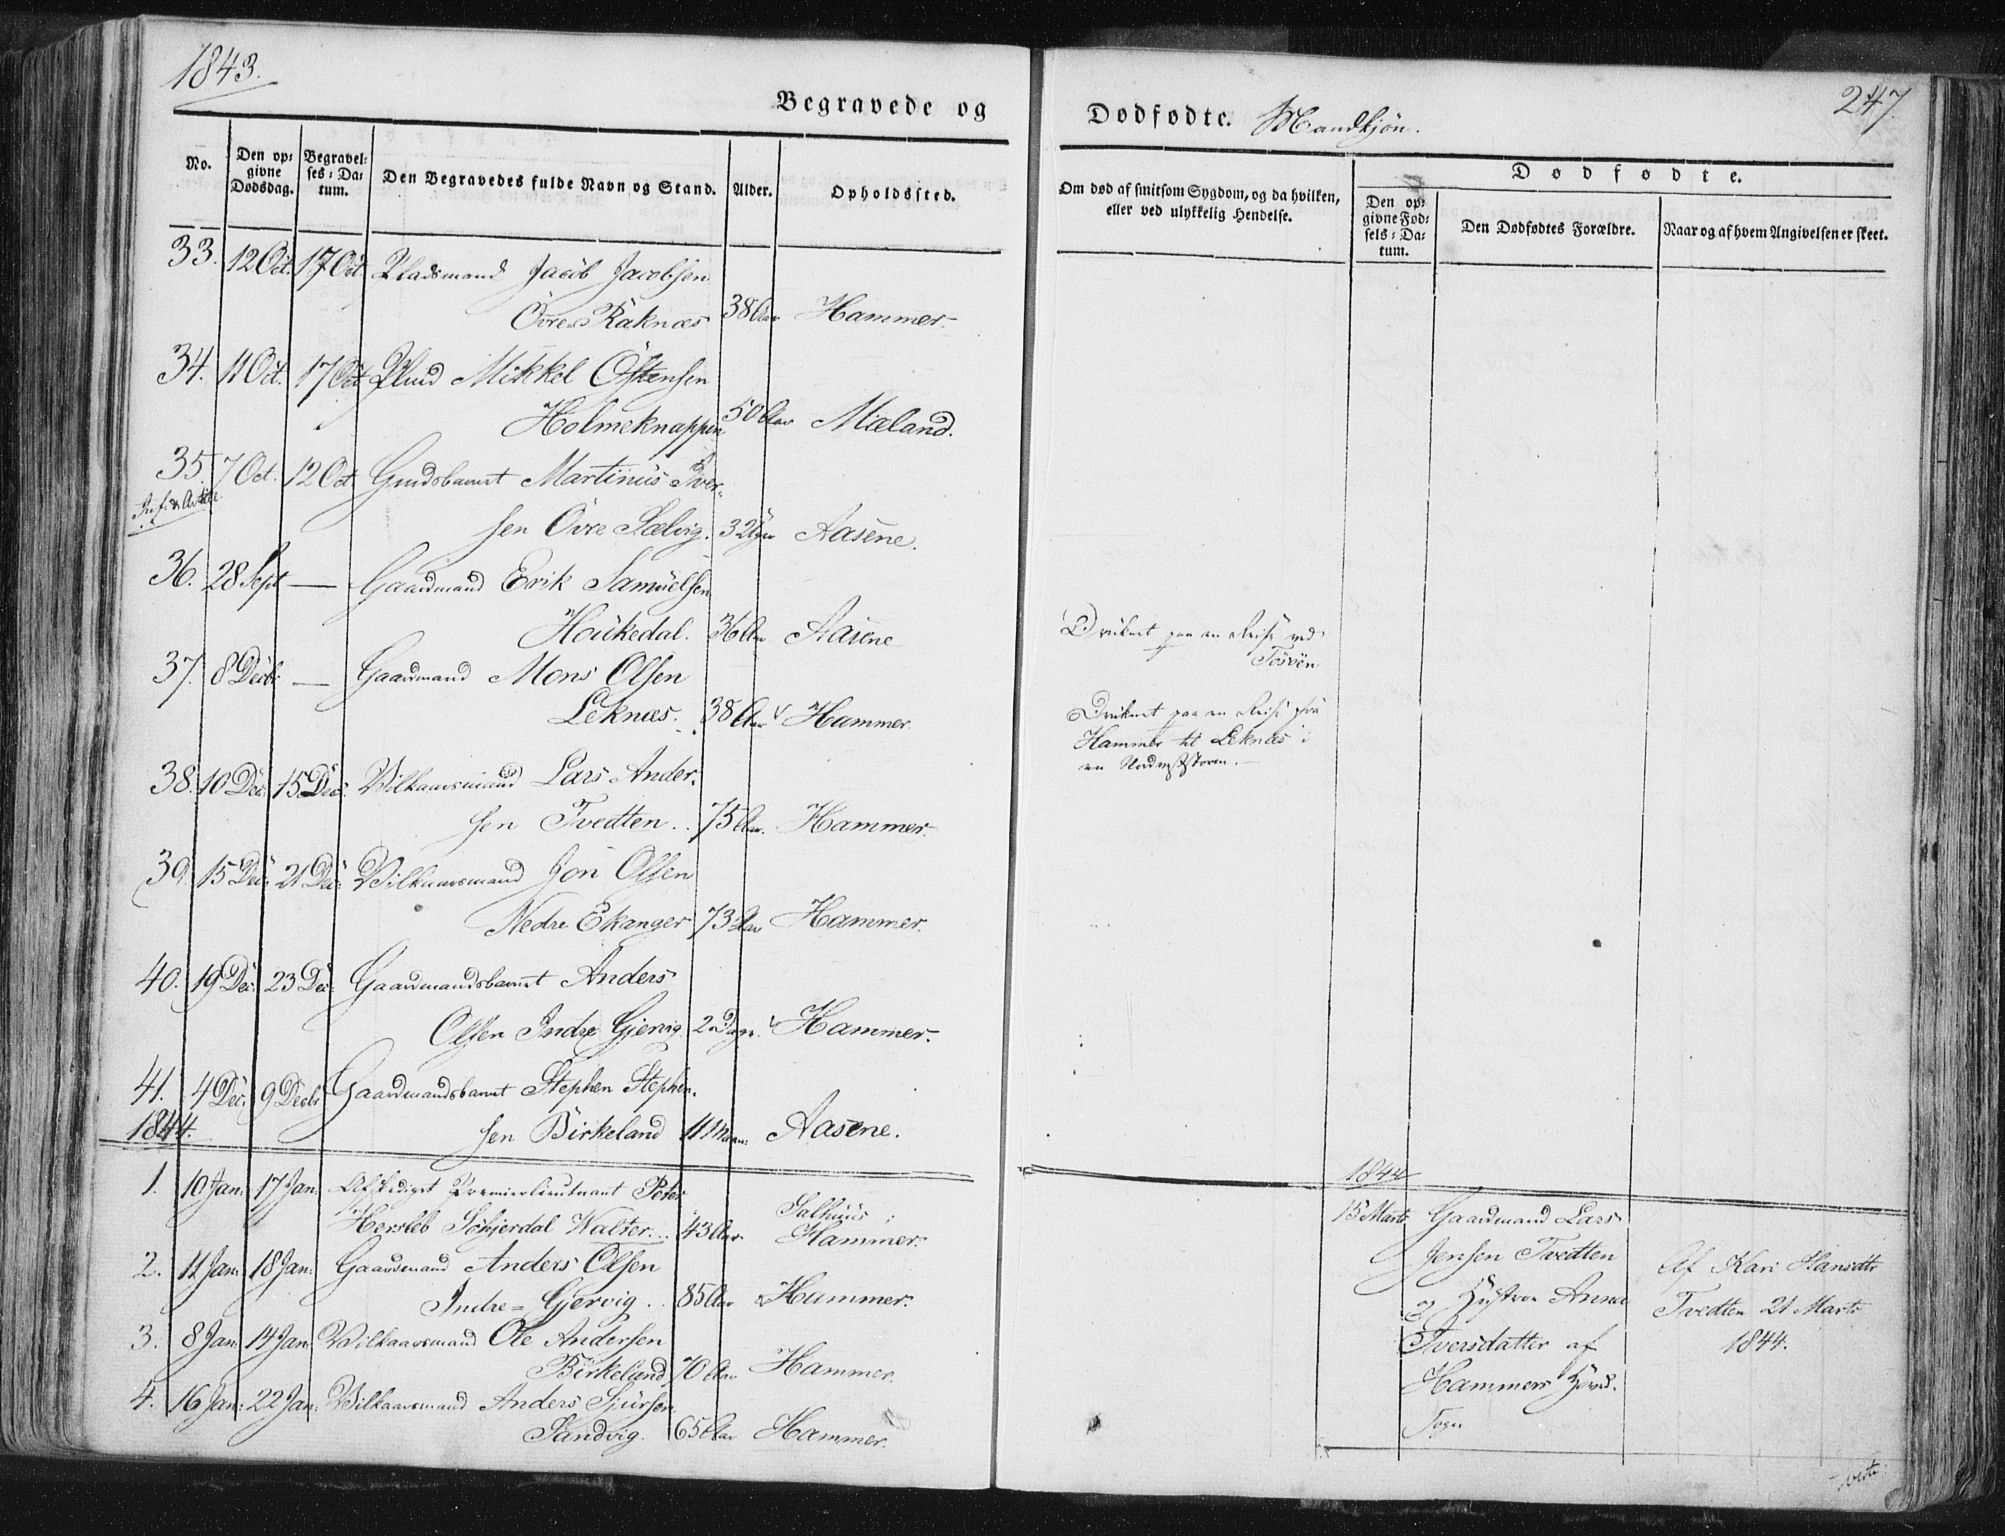 1843.
Begravede og
No.
Den opgivne Dödsdag.
Begravelses-Datum.
Den Begravedes fulde Navn og Stand.
Alder.
Opholdssted.
33. 12 Oct. 17 Oct. Pladsmand Jacob Jacobsen
Övre Raknæs 38 Aar Hammer.
34. 11 Oct. 17 Oct. Mikkel Östensen
Holmeknappen 50 Aar Mæland.
35. 7 Oct. 12 Oct. Martinus Iver-
sen Övre Sælvig. 3 Uger Aasene.
36. 28 Sept — Gaardmand Erik Samuelsen
Houkedal. 36 Aar Aasene
37. 8 Decbr — Gaardmand Mons Olsen
Leknæs. 38 Aar Hammer.
38. 10 Dec. 15 Dec. Vilkaarsmand Lars Ander-
sen Tvedten.. 75 Aar. Hammer.
39. 15 Dec. 21 Dec. Vilkaarsmand Jon Olsen
Nedre Ekanger 73 Aar Hammer.
40. 19 Dec. 23 Dec. Gaardmandsbarnet Anders
Olsen Indre Gjervig. 2 Dage. Hammer.
41. 4 Dec. 9 Decbr Gaardmandsbarnet Stephen Stephen-
sen Birkeland 11 Maan: Aasene.
1844.
1. 10 Jan: 17 Jan: Afskediget Premierlieutnant Peter
Hersleb Schjerdal Walter... 43 Aar. Salhuus, Hammer.
2. 11 Jan: 18 Jan: Gaardmand Anders Olsen
Indre-Gjervig.. 85 Aar Hammer.
3. 8 Jan: 14 Jan: Vilkaarsmand Ole Andersen
Birkeland 70 Aar Hammer.
4. 16 Jan: 22 Jan: Vilkaarsmand Anders Sjursen
Sandvig. 65 Aar Hammer.
Dodfodte. Mandkjön.
247.
Om död af smitsom Sygdom, og da hvilken,
eller ved ulykkelig Hendelse.
Dodfodte.
Den opgivne Födsels-Datum.
Den Dödfödtes Forældre.
Naar og af hvem Angivelsen er skeet.
Druknet paa en Reise ved
Druknet paa en Reise fra
Hammer til Leknæs i
en
1844
15 Marts Gaardmand Lars
Jensen Tvedten
og Hustroe Anna
Iversdatter af
Hammers Hoved-
Sogn
Af Kari Hansdtr
Tvedten 21 Marts
1844.